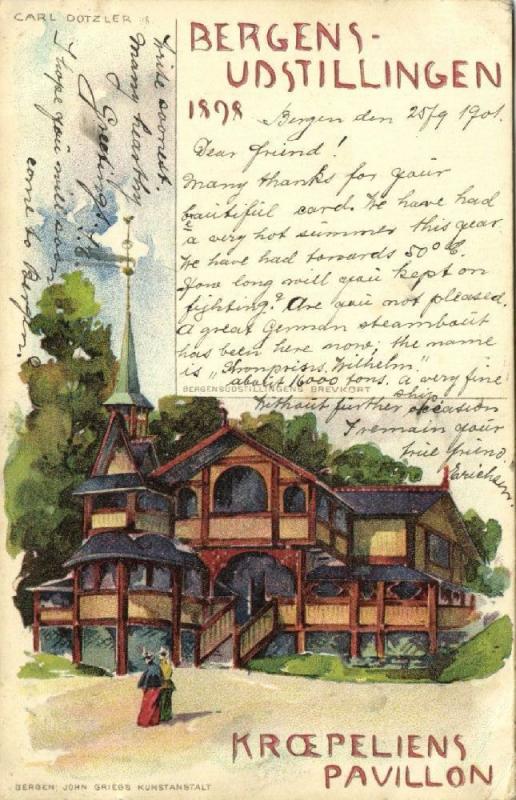 CARL DOTZLER
BERGENS-
UDSTILLINGEN
1898
Bergen den 25/9 1901.
Dear friend!
Many thanks for your
beautiful card. We have had
a very hot summer this year
We have had towards 50° C.
How long will you kept on
fighting? Are you not pleased.
A great German steambout
has been here now; the name
is „Kronprins Wilhelm."
BERGENSUDSTILLINGENS BREVKORT
about 16000 tons. a very fine
ship
Without further occasion
I remain your
true friend
Erichsen.
Write soonest.
Many hearthy
Greetings!
I hope you will soon
come to Bergen.
KRŒPELIENS
PAVILLON
BERGEN: JOHN GRIEGS KUNSTANSTALT